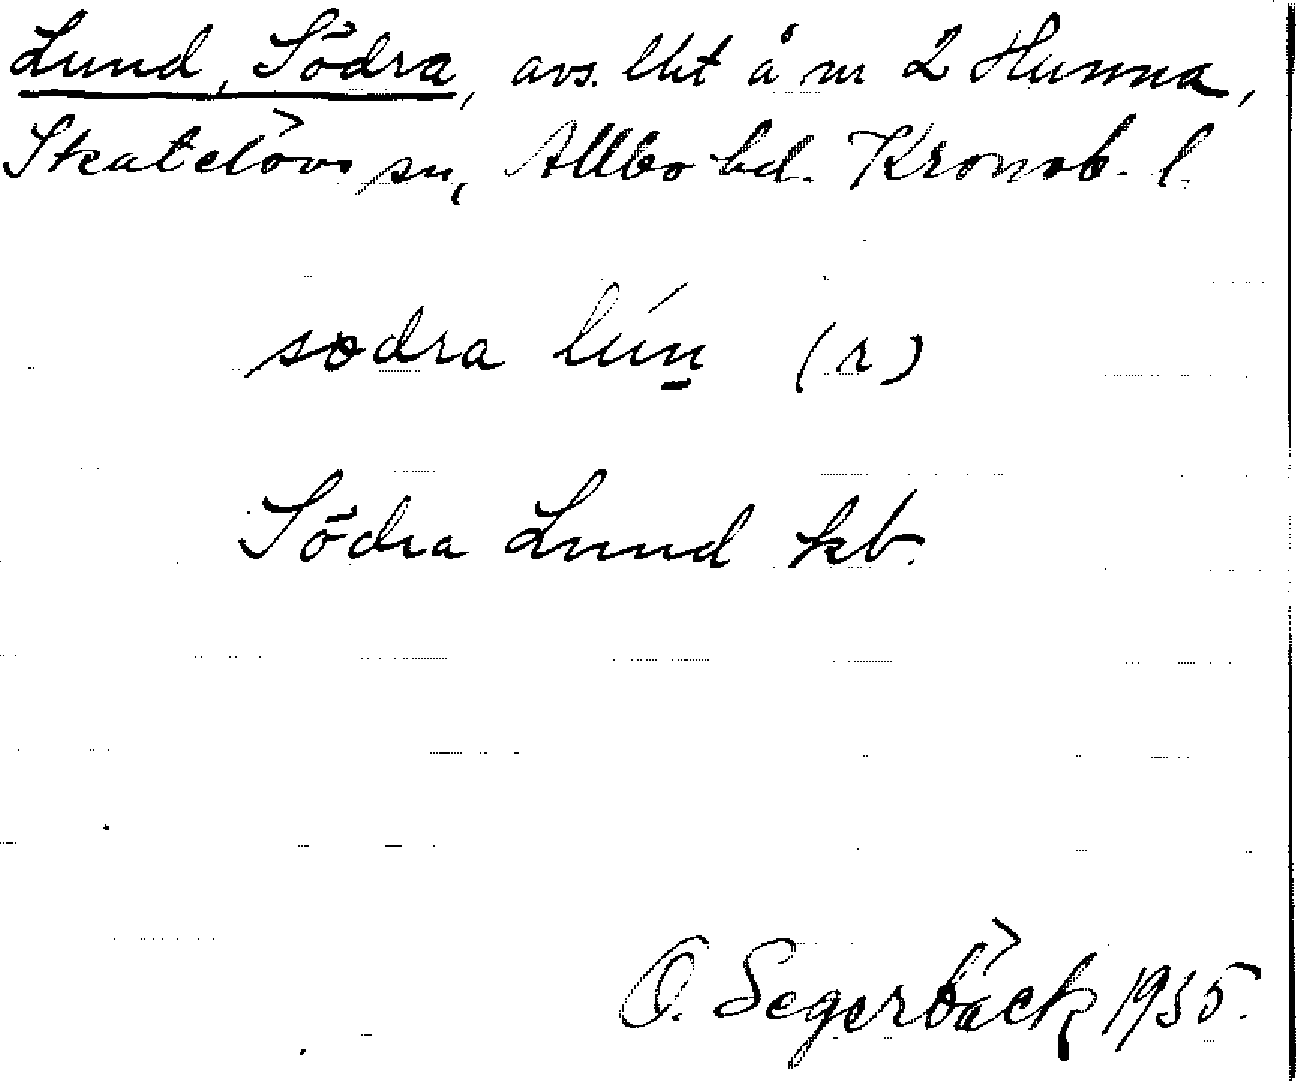 Lund, Södra, avs. lht å nr 2 Hunna,
Skatelövs sn, Allbo hd. Kronob. l.
södra lún (r)
Södra Lund kb.
O. Segerbäck 1935.